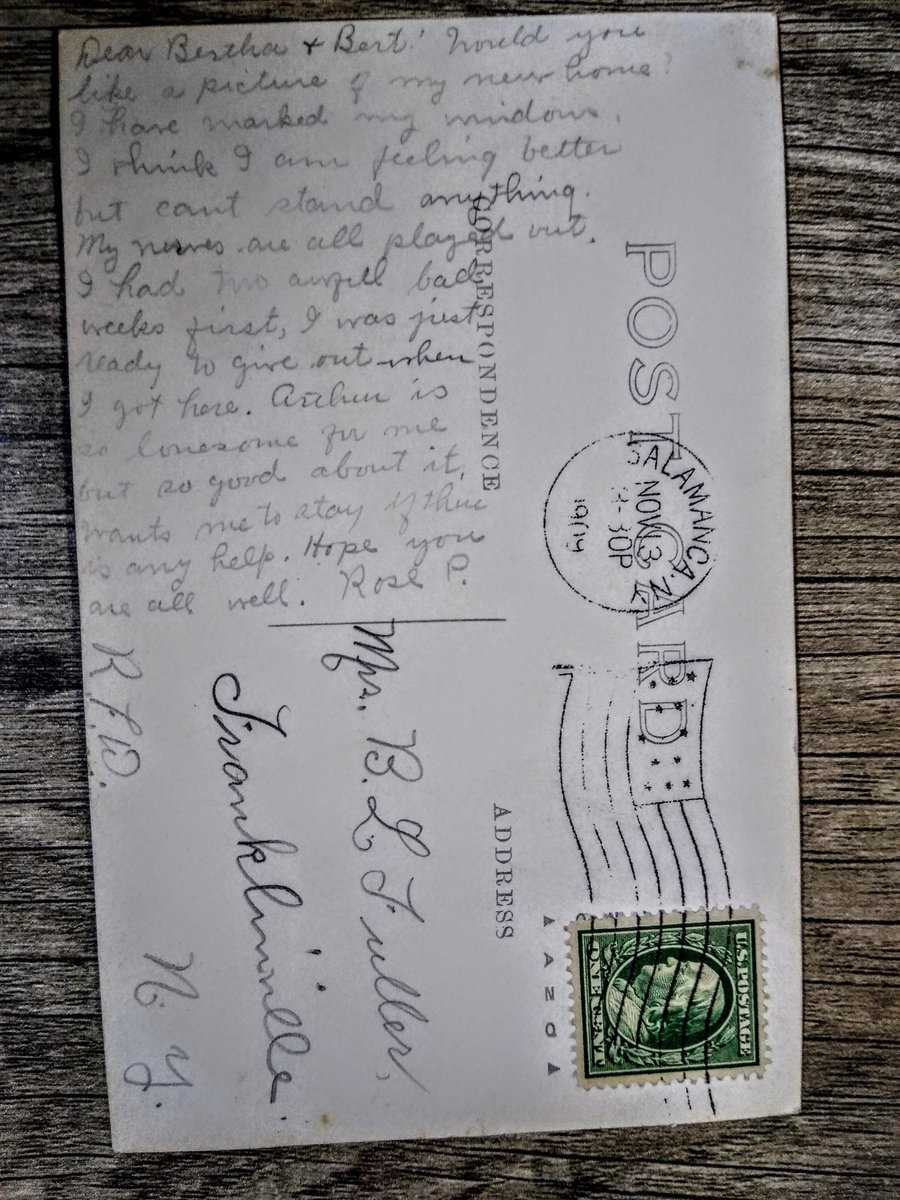 Dear Bertha + Bert! Would you
like a picture of my new home?
I have marked my windows.
I think I am feeling better
but cant stand anything.
My nerves are all played out.
I had two awfull bad
weeks first, I was just
ready to give out when
I got here. Arthur is
so lonesome for me
but so good about it,
wants me to stay if there
is any help. Hope you
are all well. Rose P.
POST CARD
CORRESPONDENCE
ADDRESS
SALAMANCA, N.
NOV 3
30P
Mrs. B. L. Fuller,
Franklinville.
R.F.D.
N. Y.
U.S. POSTAGE
ONE CENT
AZO